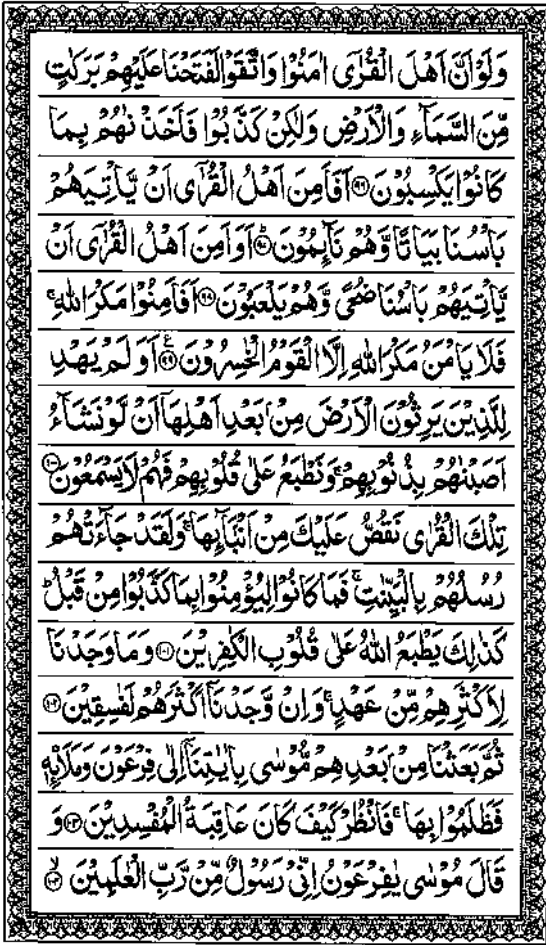 وَلَوْ اَنَّ اَهْلَ الْقُرٰٓى اٰمَنُوْا وَاتَّقَوْا لَفَتَحْنَا عَلَيْهِمْ بَرَكٰتٍ
مِّنَ السَّمَآءِ وَالْاَرْضِ وَلٰكِنْ كَذَّبُوْا فَاَخَذْنٰهُمْ بِمَا
كَانُوْا يَكْسِبُوْنَ ﴿۹۶﴾ اَفَاَمِنَ اَهْلُ الْقُرٰٓى اَنْ يَّاْتِيَهُمْ
بَاْسُنَا بَيَاتًا وَّهُمْ نَآئِمُوْنَ ﴿۹۷﴾ؕ اَوَ اَمِنَ اَهْلُ الْقُرٰٓى اَنْ
يَّاْتِيَهُمْ بَاْسُنَا ضُحًى وَّهُمْ يَلْعَبُوْنَ ﴿۹۸﴾ اَفَاَمِنُوْا مَكْرَ اللّٰهِ ۚ
فَلَا يَاْمَنُ مَكْرَ اللّٰهِ اِلَّا الْقَوْمُ الْخٰسِرُوْنَ ﴿۹۹﴾ ۧ اَوَلَمْ يَهْدِ
لِلَّذِيْنَ يَرِثُوْنَ الْاَرْضَ مِنْۢ بَعْدِ اَهْلِهَاۤ اَنْ لَّوْ نَشَآءُ
اَصَبْنٰهُمْ بِذُنُوْبِهِمْ ۚ وَنَطْبَعُ عَلٰى قُلُوْبِهِمْ فَهُمْ لَا يَسْمَعُوْنَ ﴿۱۰۰﴾
تِلْكَ الْقُرٰى نَقُصُّ عَلَيْكَ مِنْ اَنْۢبَآئِهَا ۚ وَلَقَدْ جَآءَتْهُمْ
رُسُلُهُمْ بِالْبَيِّنٰتِ ۚ فَمَا كَانُوْا لِيُؤْمِنُوْا بِمَا كَذَّبُوْا مِنْ قَبْلُ ؕ
كَذٰلِكَ يَطْبَعُ اللّٰهُ عَلٰى قُلُوْبِ الْكٰفِرِيْنَ ﴿۱۰۱﴾ وَمَا وَجَدْنَا
لِاَكْثَرِهِمْ مِّنْ عَهْدٍ ۚ وَاِنْ وَّجَدْنَاۤ اَكْثَرَهُمْ لَفٰسِقِيْنَ ﴿۱۰۲﴾
ثُمَّ بَعَثْنَا مِنْۢ بَعْدِهِمْ مُّوْسٰى بِاٰيٰتِنَاۤ اِلٰى فِرْعَوْنَ وَمَلَا۟ئِهٖ
فَظَلَمُوْا بِهَا ۚ فَانْظُرْ كَيْفَ كَانَ عَاقِبَةُ الْمُفْسِدِيْنَ ﴿۱۰۳﴾ وَ
قَالَ مُوْسٰى يٰفِرْعَوْنُ اِنِّىْ رَسُوْلٌ مِّنْ رَّبِّ الْعٰلَمِيْنَ ﴿۱۰۴﴾ۙ